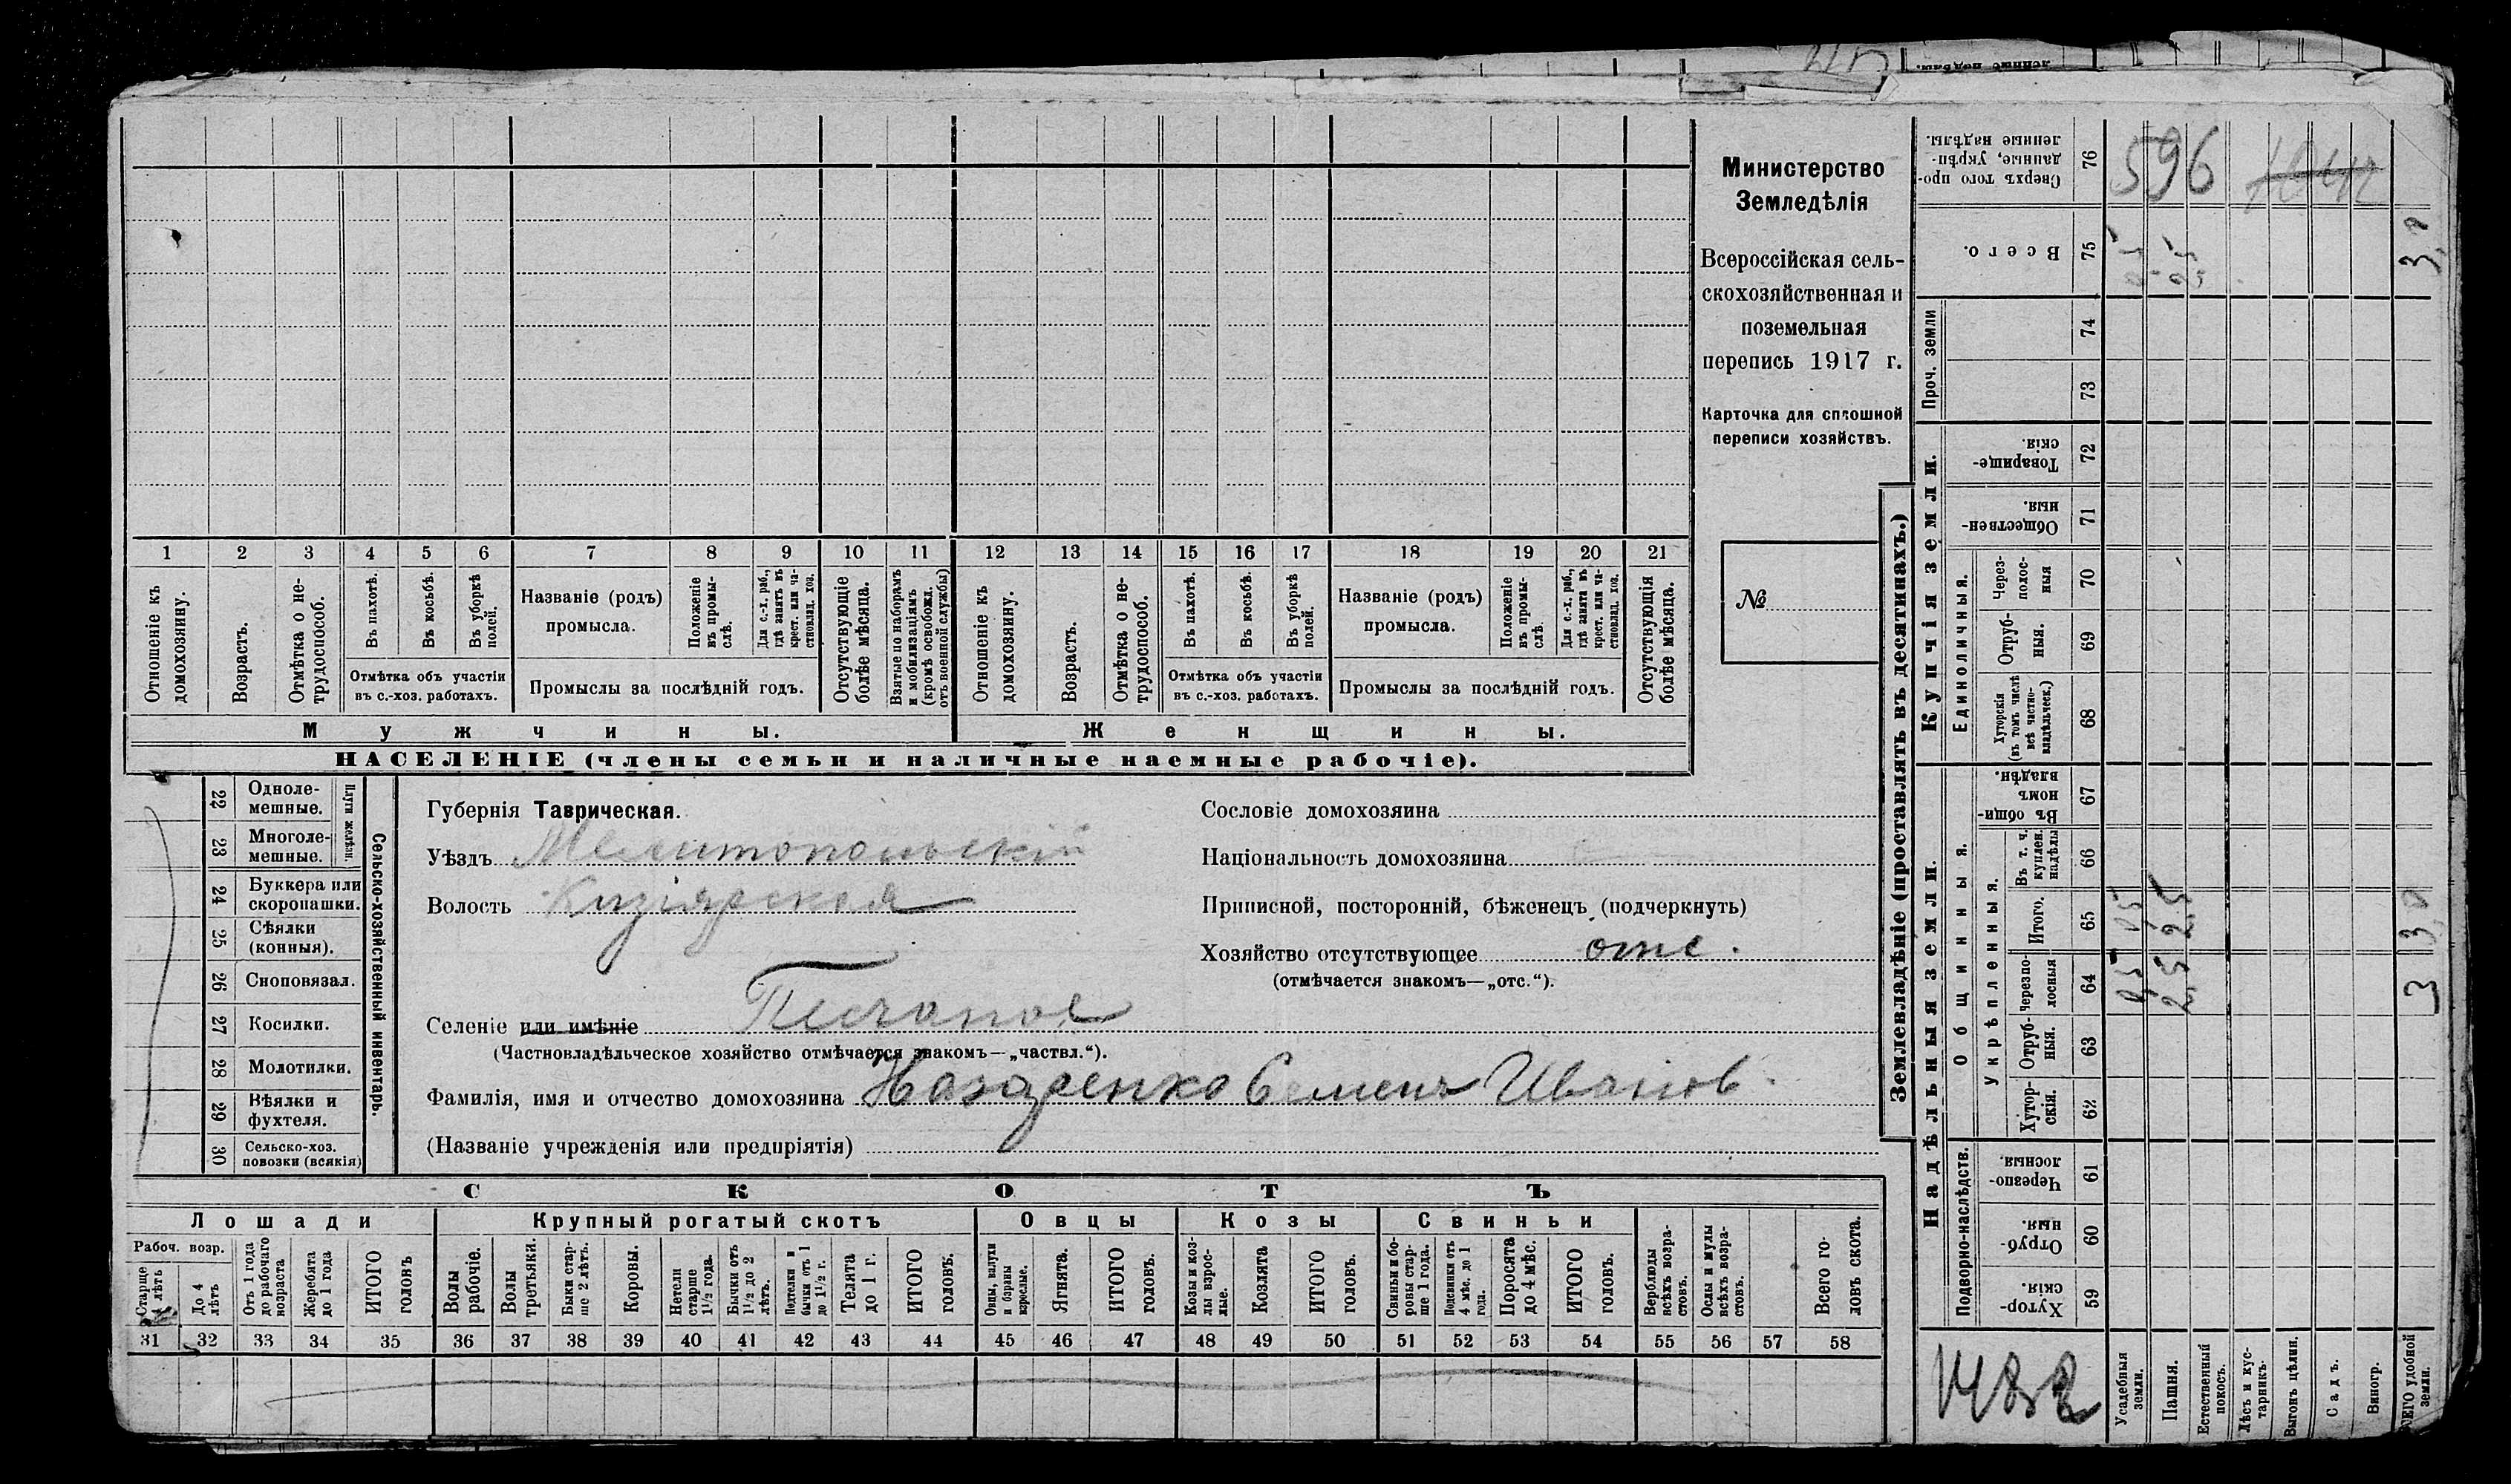 Министерство
Земледѣлія
Всероссійская сель-
скохозяйственная и
поземельная
перепись 1917 г.
Карточка для сплошной
переписи хозяйствъ.
№
1 2 3 4 5 6 7 8 9 10 11 12 13 14 15 16 17 18 19 20 21
Отношеніе къ домохозяину.
Возрастъ.
Отмѣтка о не-трудоспособ.
Въ пахотѣ.
Въ косьбѣ.
Въ уборкѣ полей.
Отмѣтка объ участіи
въ с.-хоз. работахъ.
Названіе (родъ)
промысла.
Положеніе въ промы-слѣ.
Для с.-х. раб., гдѣ занятъ въ крест. или ча-стновлад. хоз.
Промыслы за послѣдній годъ.
Отсутствующіе болѣе мѣсяца.
Взятые по наборамъ и мобилизаціямъ (кромѣ освобожд. отъ военной службы)
Отношеніе къ домохозяину.
Возрастъ.
Отмѣтка о не-трудоспособ.
Въ пахотѣ.
Въ косьбѣ.
Въ уборкѣ полей.
Отмѣтка объ участіи
въ с.-хоз. работахъ.
Названіе (родъ)
промысла.
Положеніе въ промы-слѣ.
Для с.-х. раб., гдѣ занята въ крест. или ча-стновлад. хоз.
Промыслы за послѣдній годъ.
Отсутствующія болѣе мѣсяца.
Мужчины.
Женщины.
НАСЕЛЕНІЕ (члены семьи и наличные наемные рабочіе).
Сельско-хозяйственный инвентарь.
Плуги желѣзн.
22 Однолемешные.
23 Многолемешные.
24 Буккера или скоропашки.
25 Сѣялки (конныя).
26 Сноповязал.
27 Косилки.
28 Молотилки.
29 Вѣялки и фухтеля.
30 Сельско-хоз. повозки (всякія)
Губернія Таврическая.
Уѣздъ Мелитопольскій
Волость Кизіярская
Селеніе или имѣніе Песчаное
(Частновладѣльческое хозяйство отмѣчается знакомъ—„частвл.“).
Фамилія, имя и отчество домохозяина Назаренко Семенъ Иванов.
(Названіе учрежденія или предпріятія)
Сословіе домохозяина
Національность домохозяина
Приписной, посторонній, бѣженецъ (подчеркнуть)
Хозяйство отсутствующее отс.
(отмѣчается знакомъ—„отс.“).
СКОТЪ
Лошади
Крупный рогатый скотъ
Овцы
Козы
Свиньи
Рабоч. возр.
Старше 4 лѣтъ
До 4 лѣтъ
Отъ 1 года до рабочаго возраста
Жеребята до 1 года
ИТОГО головъ
Волы рабочіе.
Волы третьяки.
Быки стар-ше 2 лѣтъ.
Коровы.
Нетели старше 1½ года.
Бычки отъ 1½ до 2 лѣтъ.
Подтелки и бычки отъ 1 до 1½ г.
Телята до 1 г.
ИТОГО головъ.
Овцы, валухи и бараны взрослые.
Ягнята.
ИТОГО головъ.
Козы и коз-лы взрос-лые.
Козлята
ИТОГО головъ.
Свиньи и бо-ровы стар-ше 1 года.
Подсвинки отъ 4 мѣс. до 1 года.
Поросята до 4 мѣс.
ИТОГО головъ.
Верблюды всѣхъ возра-стовъ.
Ослы и мулы всѣхъ возра-стовъ.
Всего го-ловъ скота.
31 32 33 34 35 36 37 38 39 40 41 42 43 44 45 46 47 48 49 50 51 52 53 54 55 56 57 58
Землевладѣніе (проставлять въ десятинахъ.)
Надѣльныя земли.
Купчія земли.
Проч. земли
Подворно-наслѣдств.
Общинныя.
Укрѣпленныя.
Единоличныя.
Сверхъ того про-данные, укрѣп-ленные надѣлы. 76
Всего. 75
74
73
Товарище-скія. 72
Обществен-ныя. 71
Через-полос-ныя 70
Отруб-ныя. 69
Хуторскія (въ томъ числѣ всѣ частно-владѣльческ.) 68
Въ общин-номъ владѣн. 67
Въ т. ч. куплен. надѣлы 66
Итого. 65
Черезпо-лосныя 64
Отруб-ныя. 63
Хутор-скія. 62
Черезпо-лосныя. 61
Отруб-ныя. 60
Хутор-скія. 59
Усадебныя земли.
Пашня.
Естественный покосъ.
Лѣсъ и кус-тарникъ.
Выгонъ цѣлин.
Садъ.
Виногр.
596
0,5 2,5 3,0
0,5 2,5 3,0
0,5 2,5 3